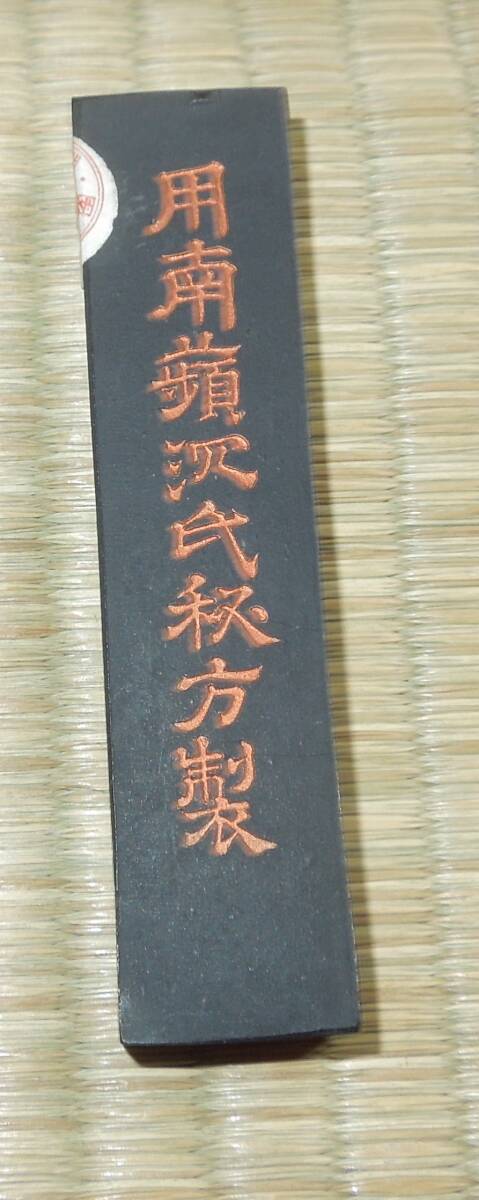 用南蘋沉氏秘方製